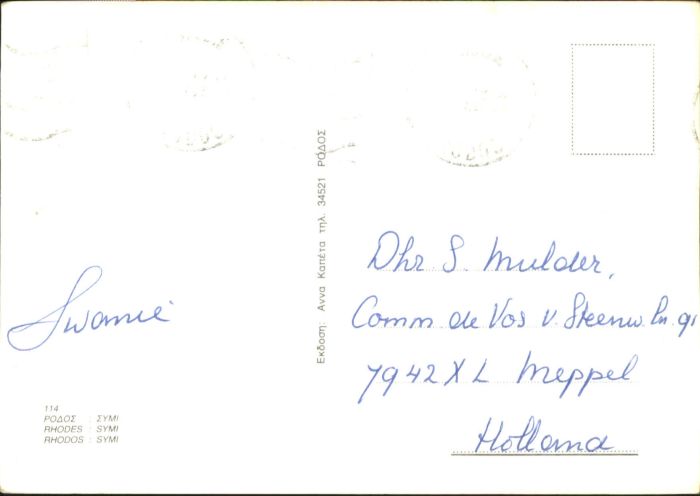 Swanie
114
ΡΟΔΟΣ : ΣΥΜΙ
RHODES : SYMI
RHODOS : SYMI
Εκδοση: Αννα Καπέτα τηλ. 34521 ΡΟΔΟΣ
Dhr S. Mulder,
Comm de Vos v. Steenw. Ln. 91
7942 XL Meppel
Holland